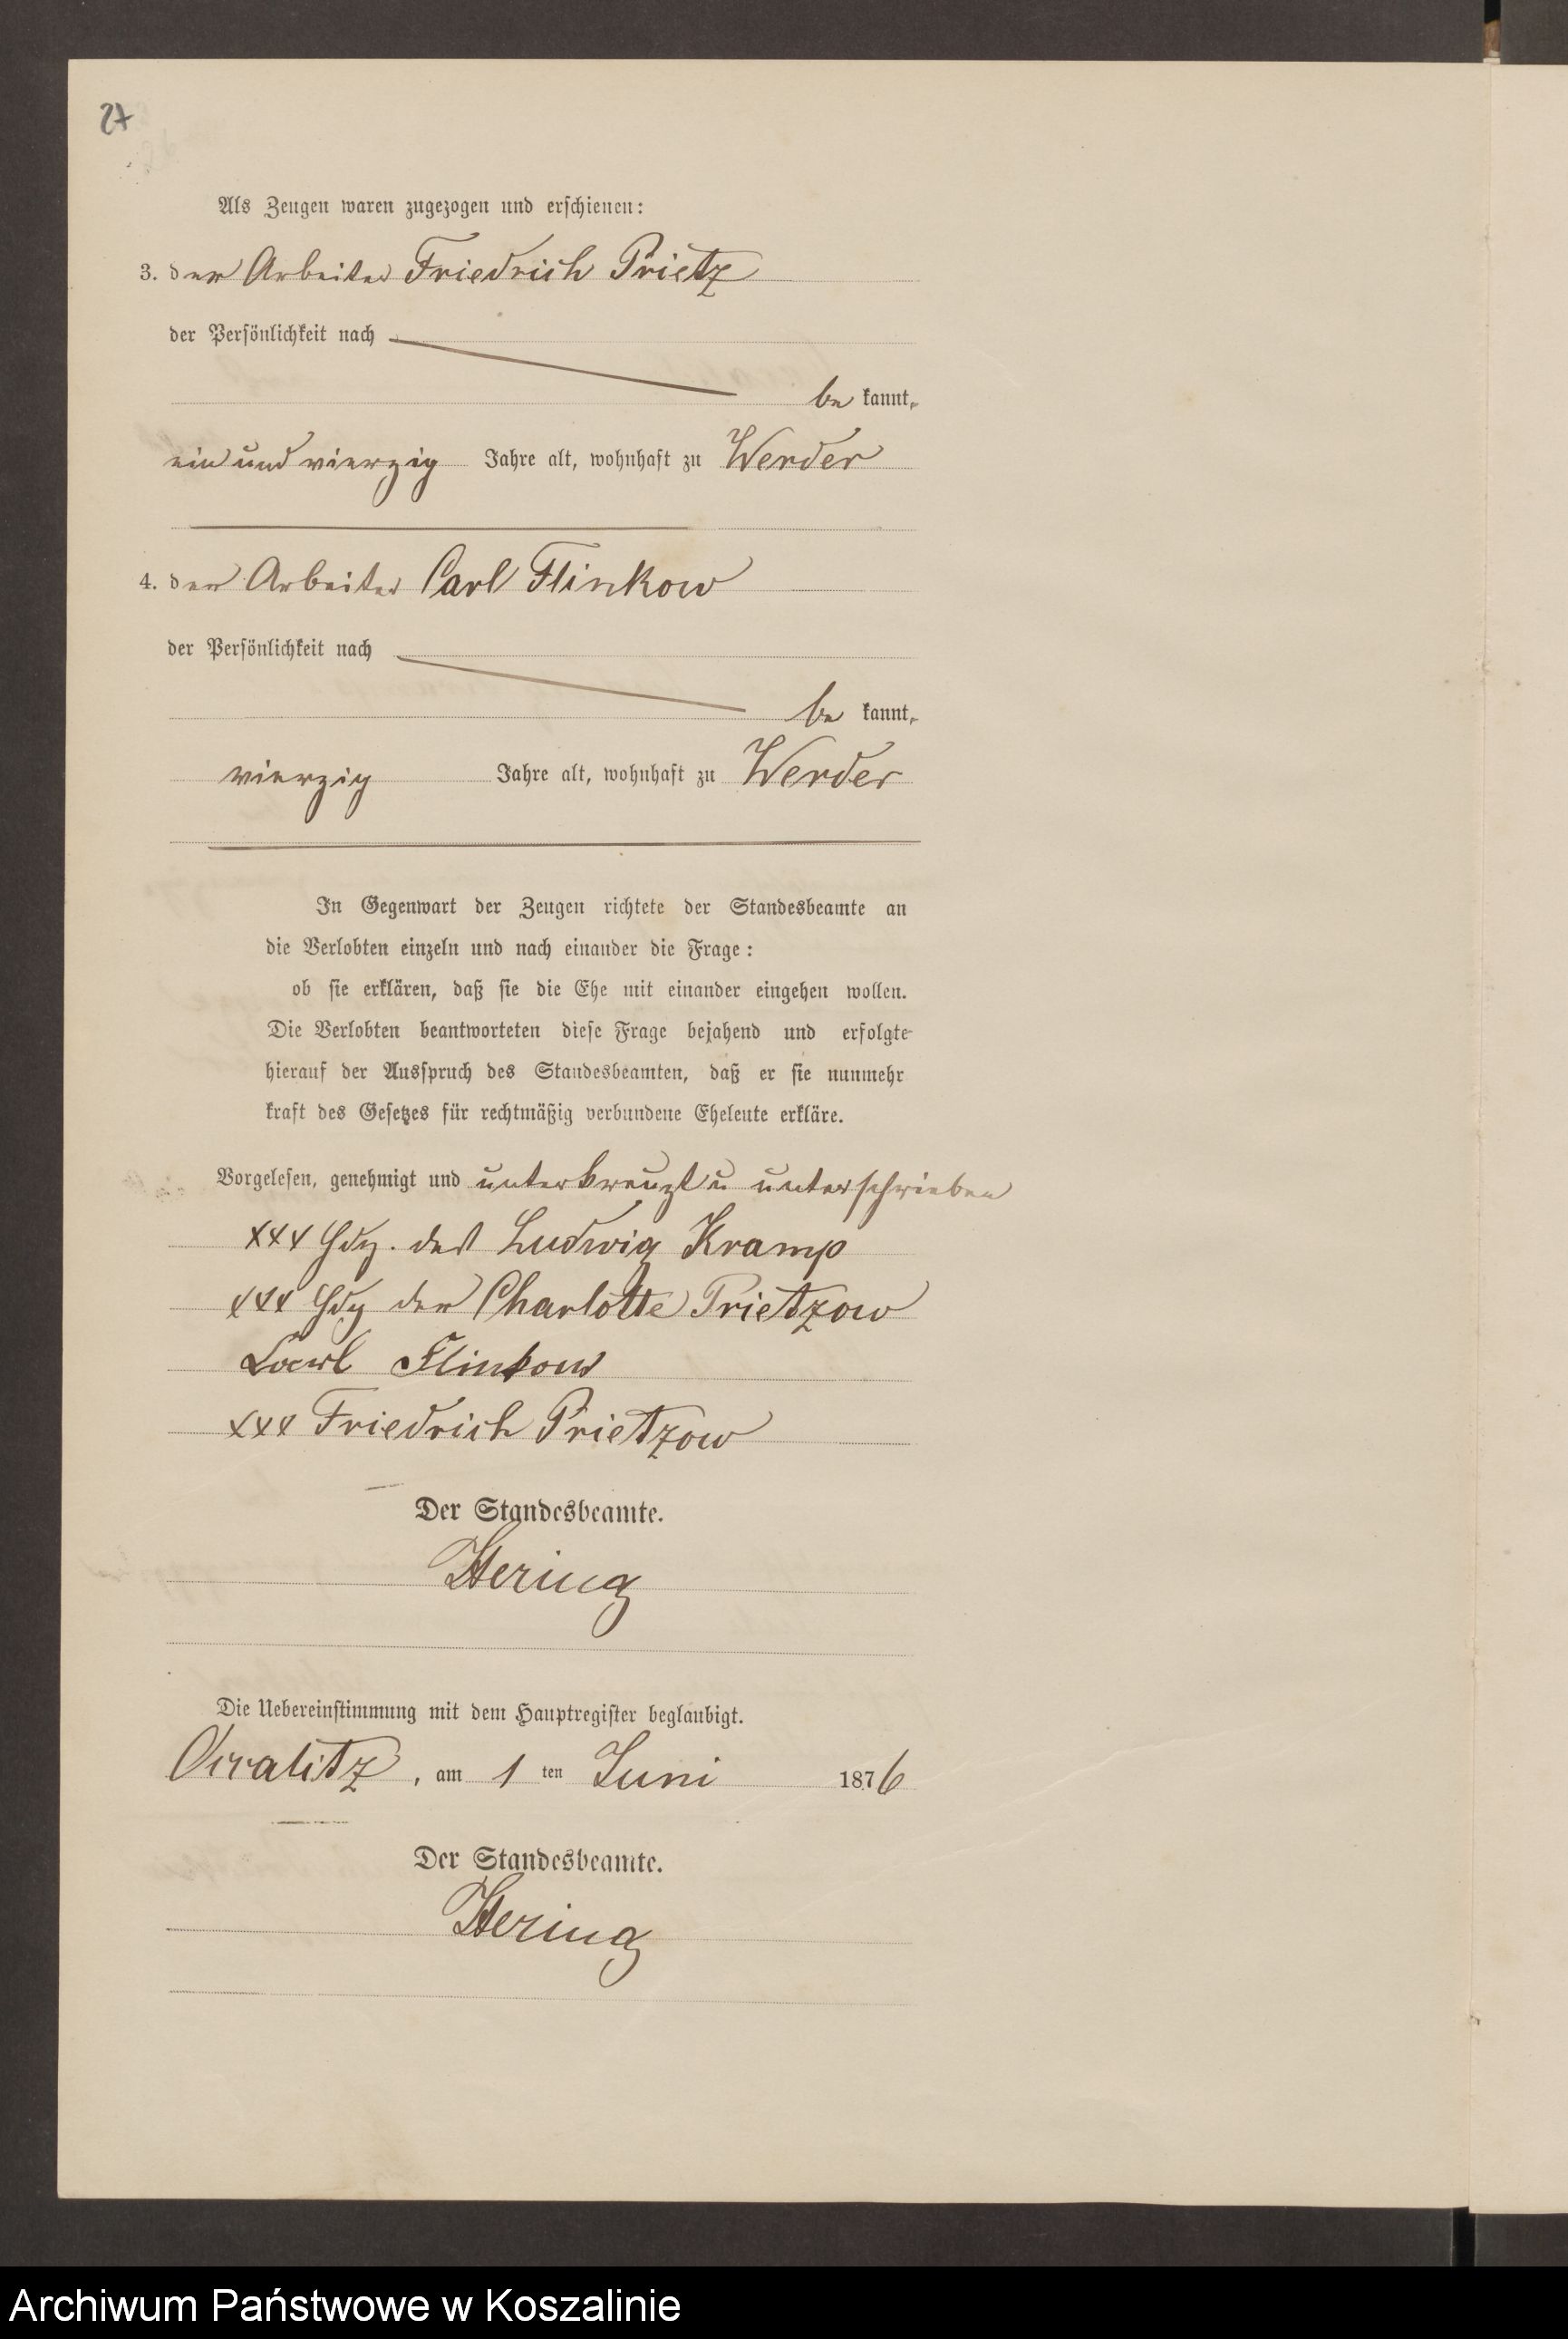 27
Als Zeugen waren zugezogen und erschienen:
3. der Arbeiter Friedrich Prietz
der Persönlichkeit nach
be kannt,
ein und vierzig Jahre alt, wohnhaft zu Werder
4. der Arbeiter Carl Flinkow
der Persönlichkeit nach
be kannt,
vierzig Jahre alt, wohnhaft zu Werder
In Gegenwart der Zeugen richtete der Standesbeamte an
die Verlobten einzeln und nach einander die Frage:
ob sie erklären, daß sie die Ehe mit einander eingehen wollen.
Die Verlobten beantworteten diese Frage bejahend und erfolgte
hierauf der Ausspruch des Standesbeamten, daß er sie nunmehr
kraft des Gesetzes für rechtmäßig verbundene Eheleute erkläre.
Vorgelesen, genehmigt und unterkreuzt u unterschrieben
xxx Hdz. des Ludwig Kramp
xxx Hdz der Charlotte Prietzow
Flinkow
xxx Friedrich Prietzow
Der Standesbeamte.
Hering
Die Uebereinstimmung mit dem Hauptregister beglaubigt.
, am 1 ten Juni 1876
Der Standesbeamte.
Hering
Archiwum Państwowe w Koszalinie